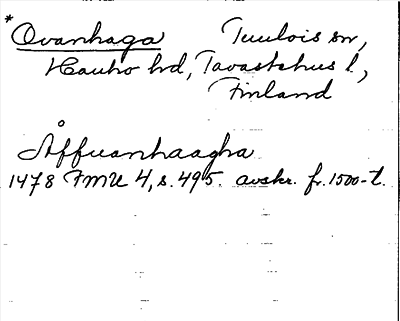 * Ovanhaga Tuulois sn,
Hauho hd, Tavastehus l,
Finland
Åffuanhaagha
1478 FMU 4, s. 495. avskr. fr. 1500-t.